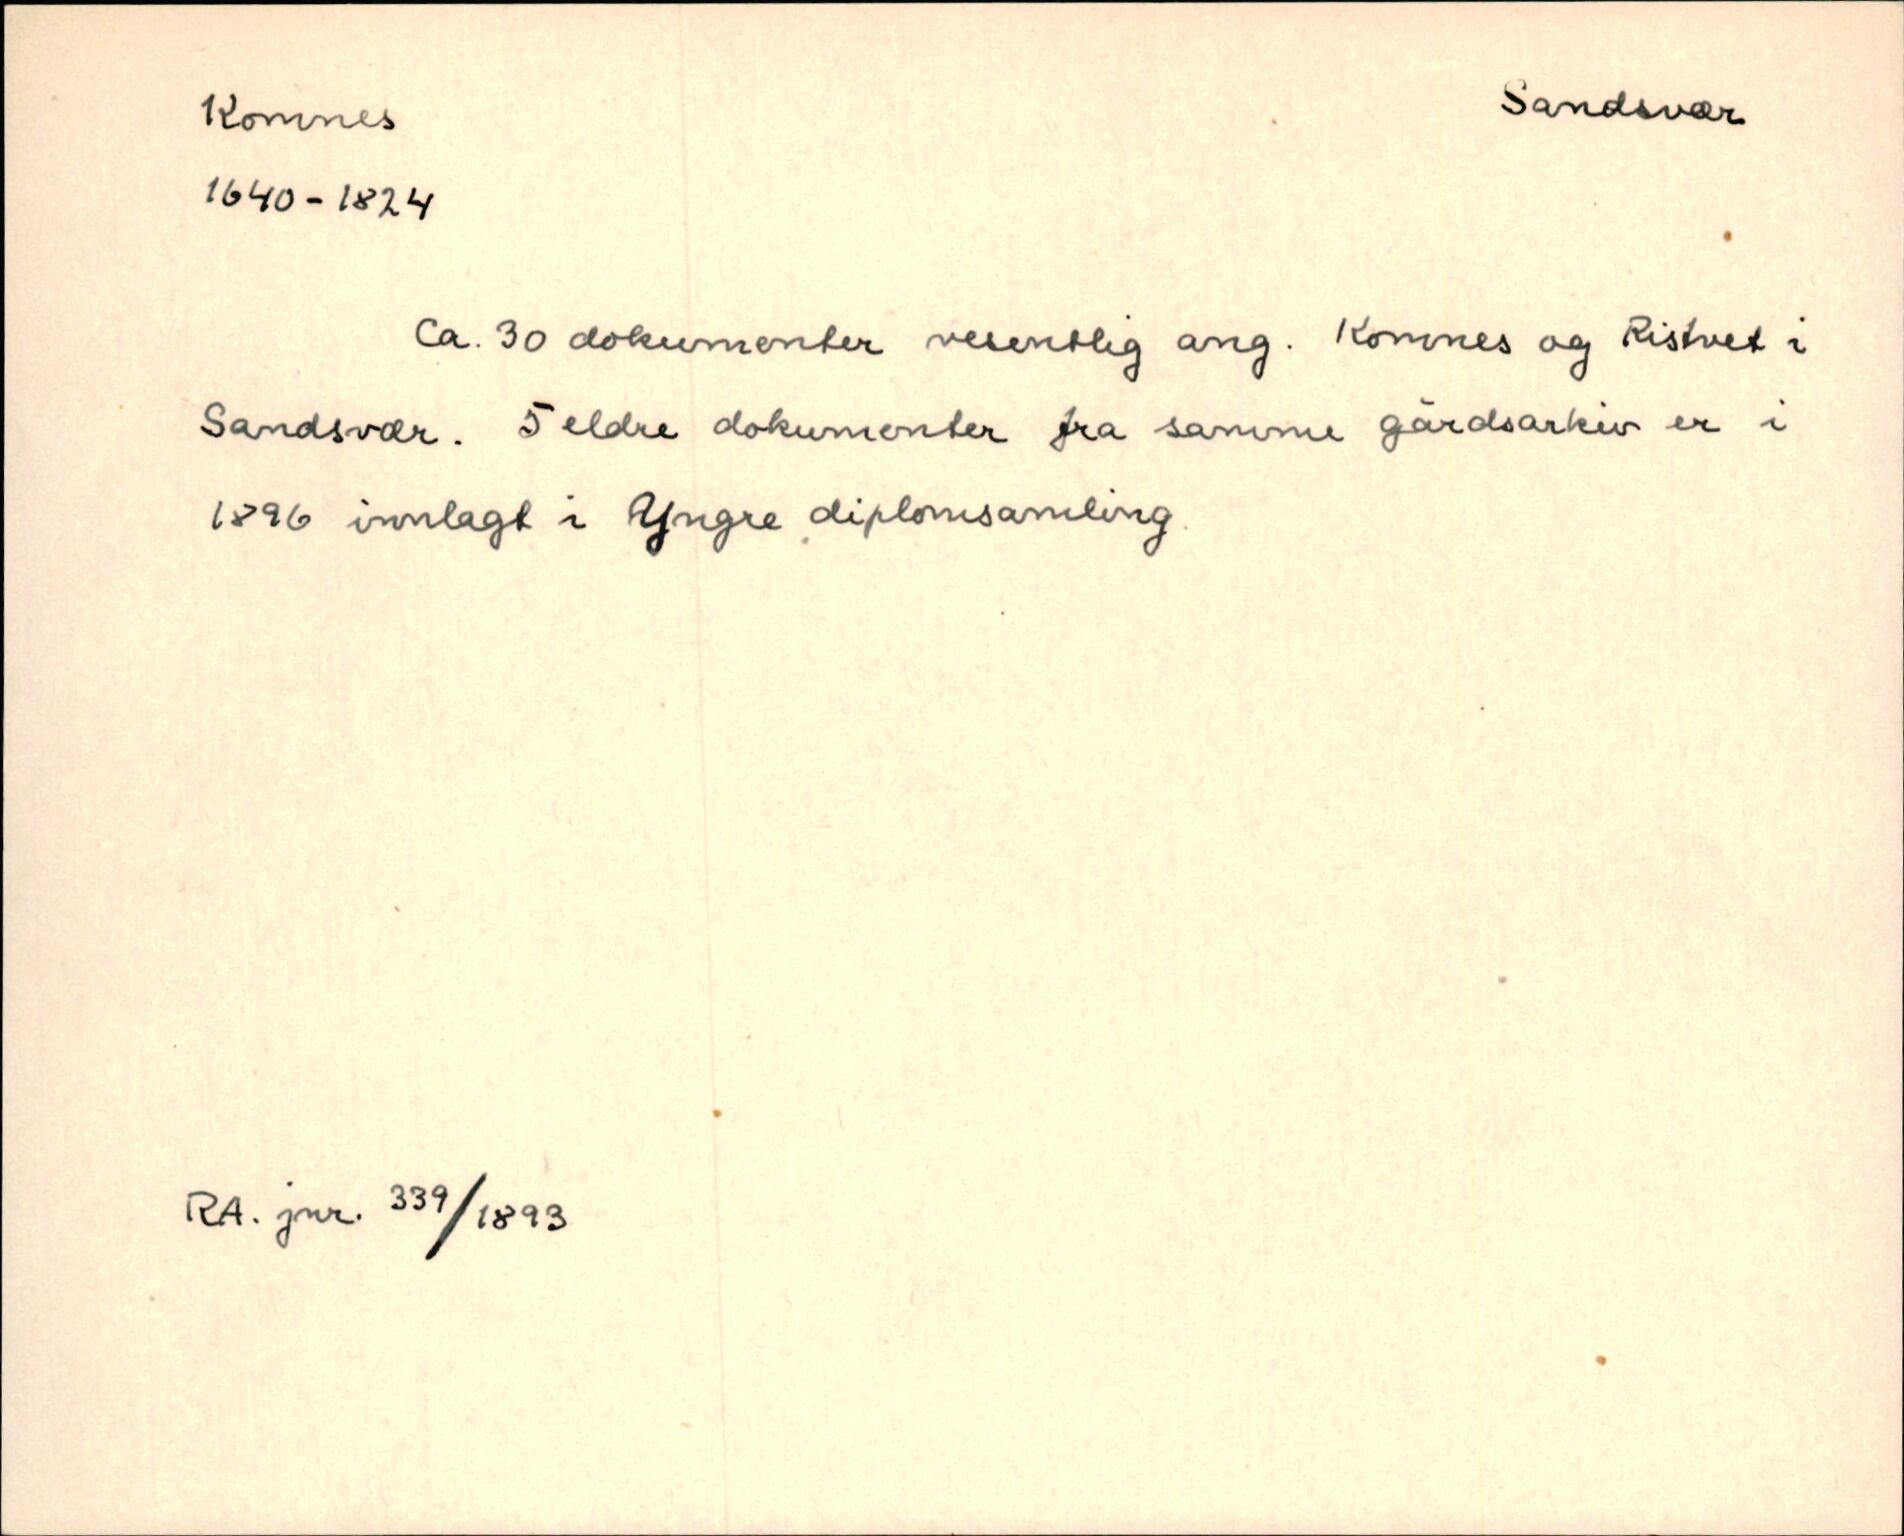 Komnes
Sandsvær
1640-1824
Ca. 30 dokumenter vesentlig ang. Komnes og Ristvet i
Sandsvær. 5 eldre dokumenter fra samme gårdsarkiv er i
1896 innlagt i Yngre diplomsamling
RA. jnr. 339/1893